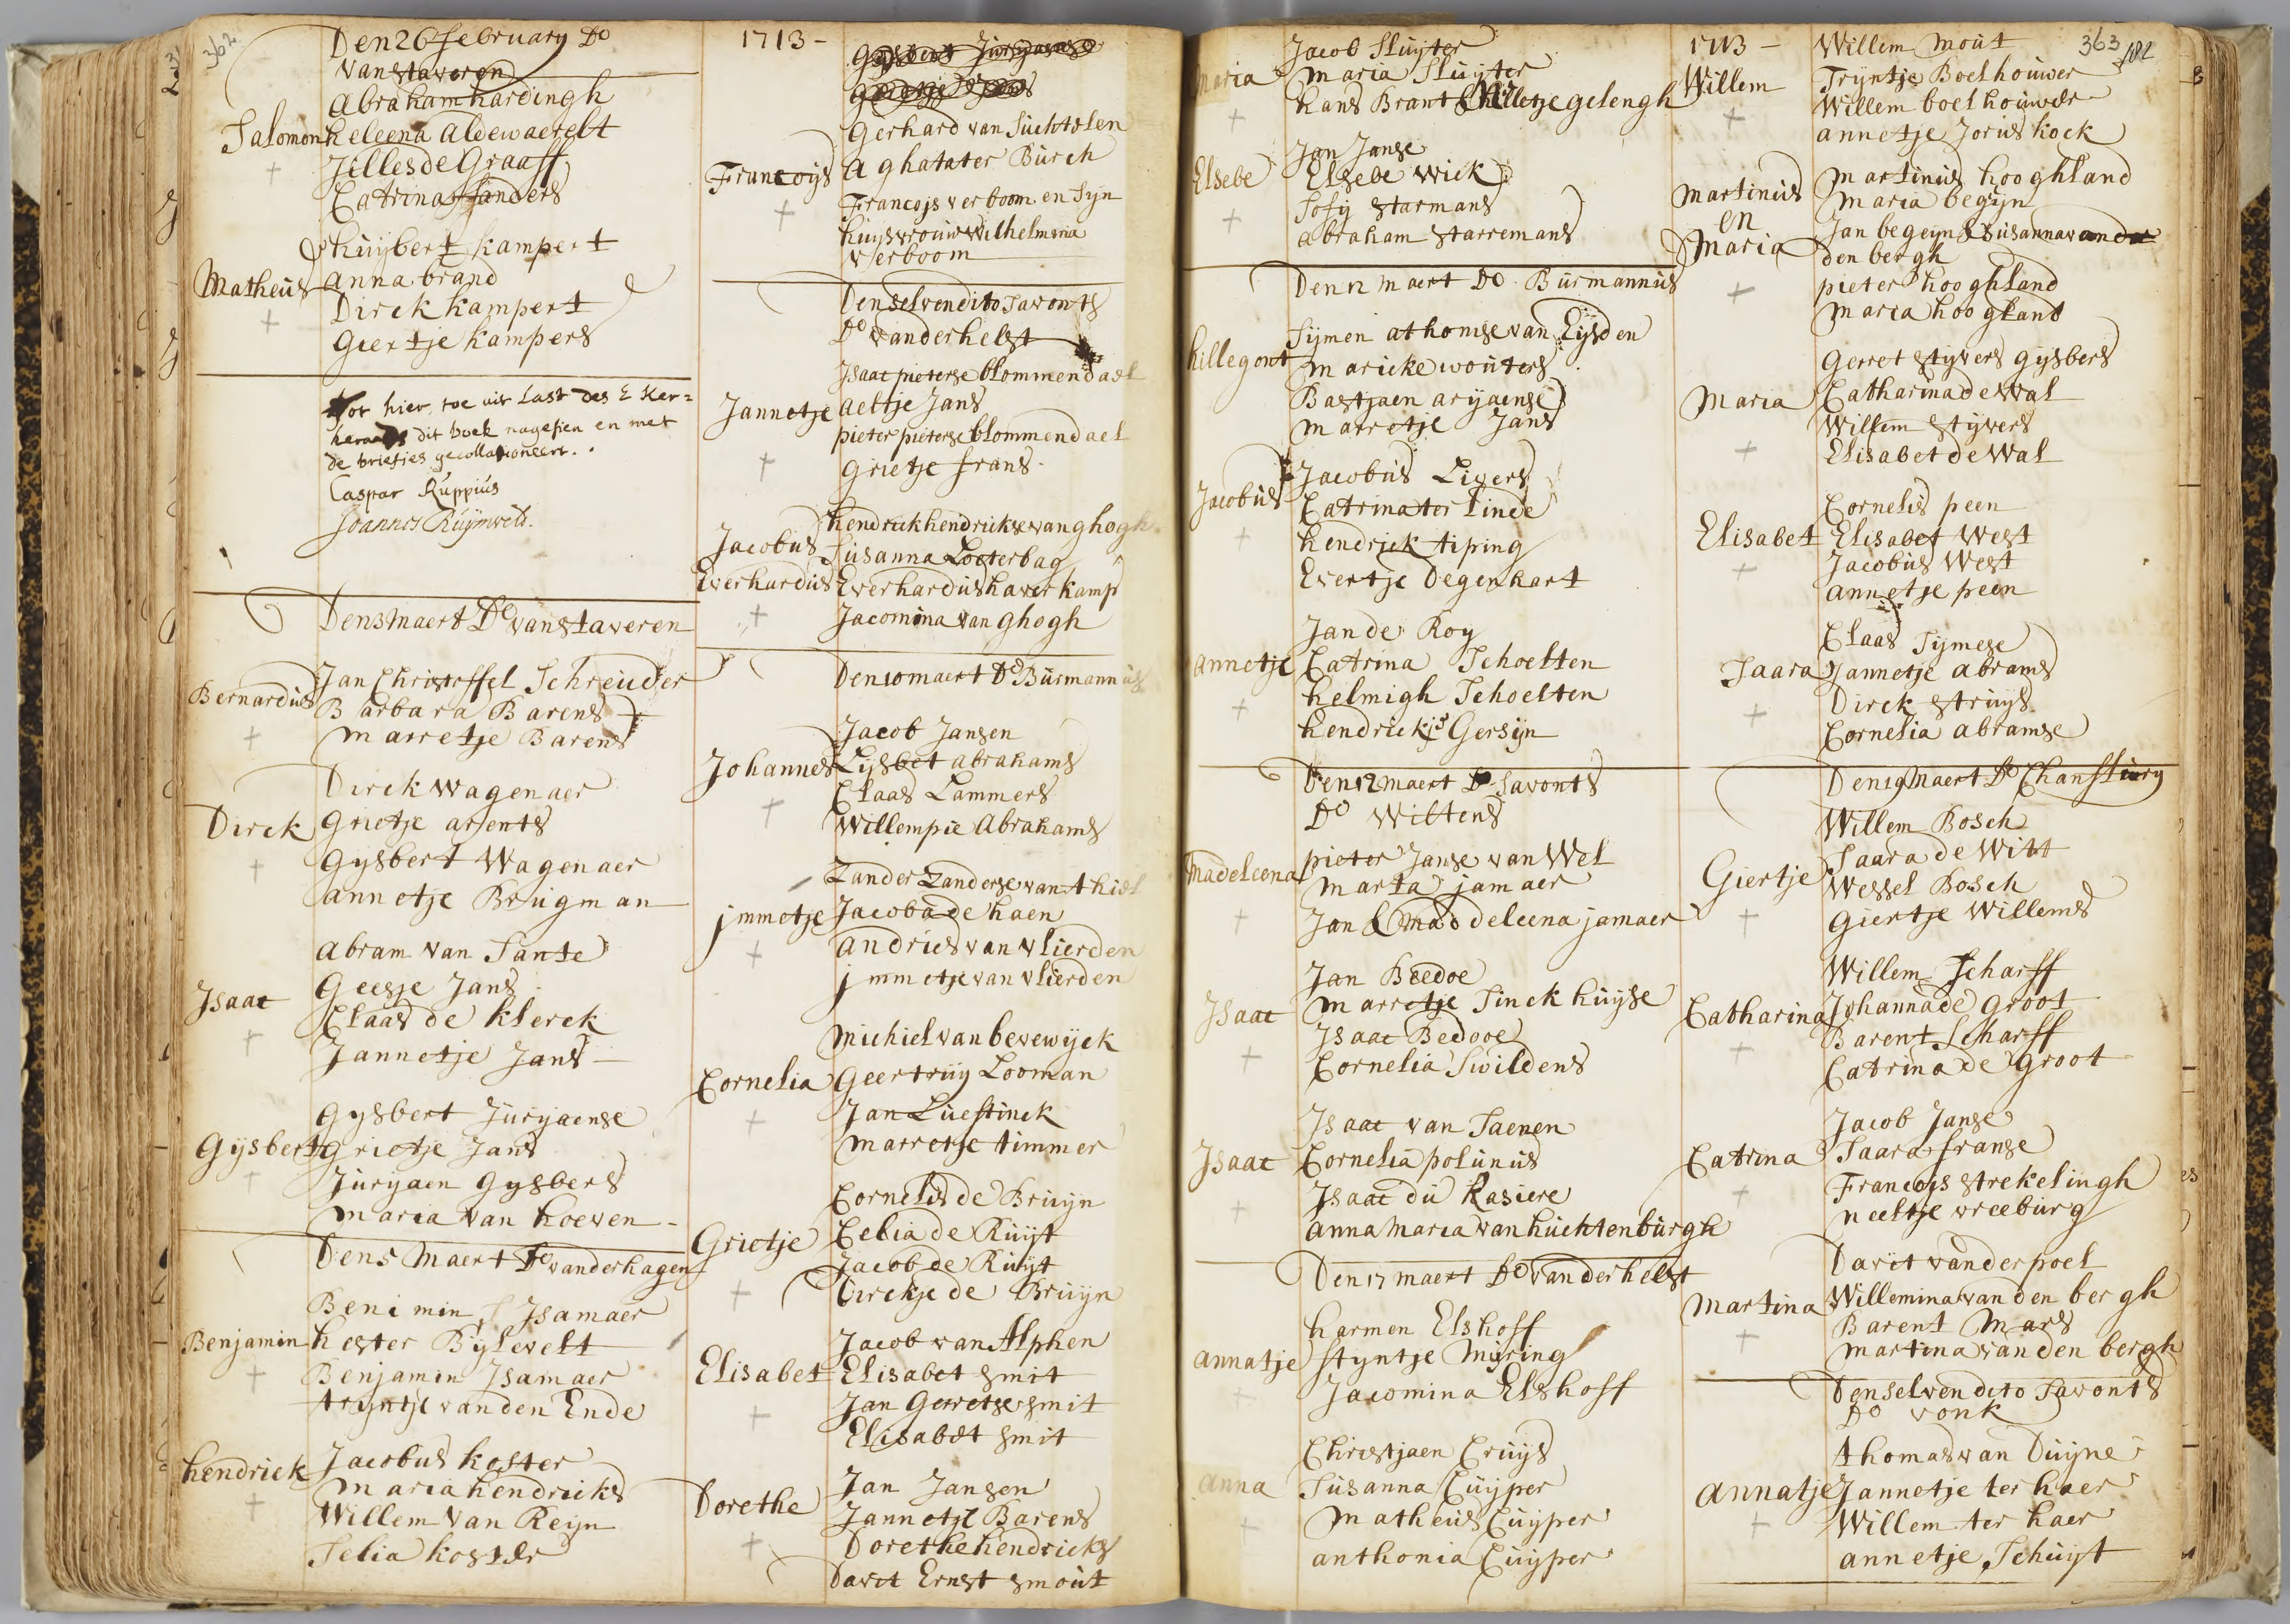 362
Den 26 february Do
van staveren
Abraham hardingh
Salomon heleena Aleewaerelt
Jilles de Graaff
Catrina Sanders
huijbert kampert
Matheus anna brand
Dirck kampert
Giertje kampers
Tot hier toe uit Last des E Ker=
keraads dit boek nagesien en met
de briefies gecollationeert.
Caspar Ruppius
Joannes Ruijmvelt.
Den 3 maert Do van staveren
Jan Christoffel Schreuder
Bernardus Barbara Barens
marretje Barens
Dirck wagenaer
Dirck Grietje arents
Gysbert Wagenaer
annetje Brugman
Abram van Sante
Geesje Jans
Isaac Claas de klerck
Jannetje Jans
Gysbert Jurjaense
Gijsbert Grietje Jans
Jurjaen Gysbers
maria van hoeven
Den 5 Maert Do vanderhagen
Benimin Isamaer
Benjamin hester Bijlevelt
Benjamin Isamaer
tryntje vanden Ende
hendrick Jacobus koster
maria hendricks
Willem van Reijn
Selia koster
1713-
Gerhard van Suchtelen
Francoijs Aghatater Burch
Francojs verboom en Syn
huijsvrouw Wilhelmina
verboom
Den selven dito savonts
Do vanderhelst
Isaac pieterse blommendael
Jannetje aeltje Jans
pieter pieterse blommendael
Grietje frans
hendrick hendrickse van ghogh
Jacobus Susanna Loeterbag
Everhardus Everhardus haverkamp
Jacomina van ghogh
Den 10 maert Do Burmannus
Jacob Jansen
Johannes Lijsbet abrahams
Claas Lammers
Willempie Abrahams
Zander Zanderse van thiel
jmmetje Jacoba de haen
andries van vlierden
jmmetje van vlierden
Michiel van bevewijck
Cornelia Geertruij Looman
Jan Luestinck
marretje timmer
Cornelis de Bruijn
Grietje Celia de Ruijt
Jacob de Ruijt
Dirckje de Bruijn
Jacob van Alphen
Elisabet Elisabet smit
Jan Gerretse smit
Elisabet smit
Jan Jansen
Dorethe Jannetje Barens
Dorethe hendricks
Davit Ernst smout
Jacob Sluijter
maria maria Sluijter
hans Brant & hilletje gelengh
Jan Janse
Elsebe Elsebe wick
Sofij starmans
abraham starremans
Den 12 maert Do Burmannus
Sijmen athomse van Eijsden
hillegont maricke wouters
Bastjaen arijaense
marretje Jans
Jacobus Jacobus Livers
Catrina ter linde
hendrick tiping
Evertje Degenhart
Jan de Roy
annetje Catrina Schoelten
helmigh Schoelten
hendrickje Gersijn
Den 12 maert savonts
Do Wiltens
pieter Janse van Wel
Madeleena marta jamaer
Jan & maddeleena jamaer
Jan Bedoe
Isaac marretje Sinckhuijse
Isaac Bedooe
Cornelia Swildens
Isaac van Saenen
Isaac Cornelia polunus
Isaac du Rasiere
anna maria van huchtenburgh
Den 17 maert Do vanderhelst
harmen Elshoff
annatje styntje Mijring
Jacomina Elshoff
Christjaen Cruijs
anna Susanna Cuijper
matheus Cuijper
anthonia Cuijper
1713- Willem mout 363
182
Willem Tryntje Boelhouwer
Willem boelhouwer
annetje Joris kock
martinus martinus hooghland
en maria begijn
maria Jan begeijn & Susanna vander
den bergh
pieter hooghland
maria hoogland
Gerret stijvers gijsbers
Maria Catharina de Wal
Willem stijvers
Elisabet de Wal
Cornelis peen
Elisabet Elisabet West
Jacobus West
annetje peen
Claas Sijmese
Saara Jannetje abrams
Dirck struijs
Cornelia abramse
Den 19 Maert Do Chanfleury
Willem Bosch
Giertje Saara de Witt
Wessel Bosch
Giertje Willems
Willem Scharff
Catharina Johanna de Groot
Barent Scharff
Catrina de Groot
Jacob Janse
Catrina Saara franse
Francojs strekelingh
neeltje vreeburg
Davit vander poel
Martina Willemina vanden bergh
Barent Mars
martina vanden bergh
Den selven dito savonts
Do vonk
thomas van Duijne
annatje Jannetje ter haer
Willem ter haer
annetje Schuijt